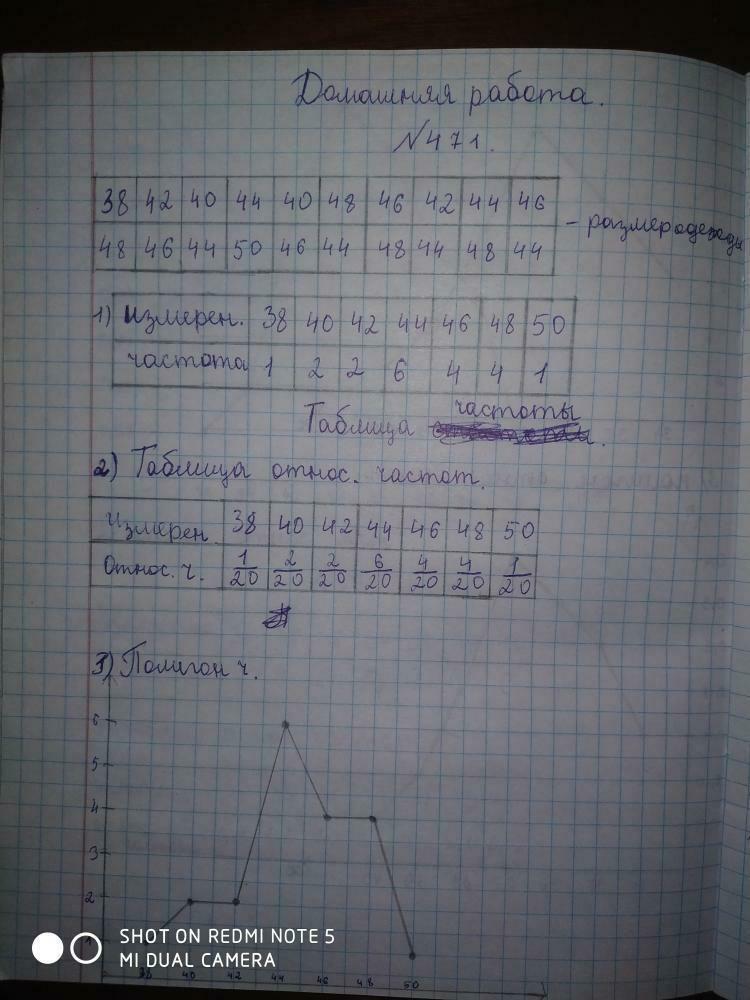 Домашняя работа.
№471.
38 42 40 44 40 48 46 42 44 46
- размер одежды
48 46 44 50 46 44 48 44 48 44
1) Измерен. 38 40 42 44 46 48 50
частота 1 2 2 6 4 4 1
Таблица частоты.
2) Таблица относ. частот.
Измерен 38 40 42 44 46 48 50
Относ. ч. 1/20 2/20 2/20 6/20 4/20 4/20 1/20
3) Полигон ч.
6
5
4
3
2
1
38 40 42 44 46 48 50
SHOT ON REDMI NOTE 5
MI DUAL CAMERA